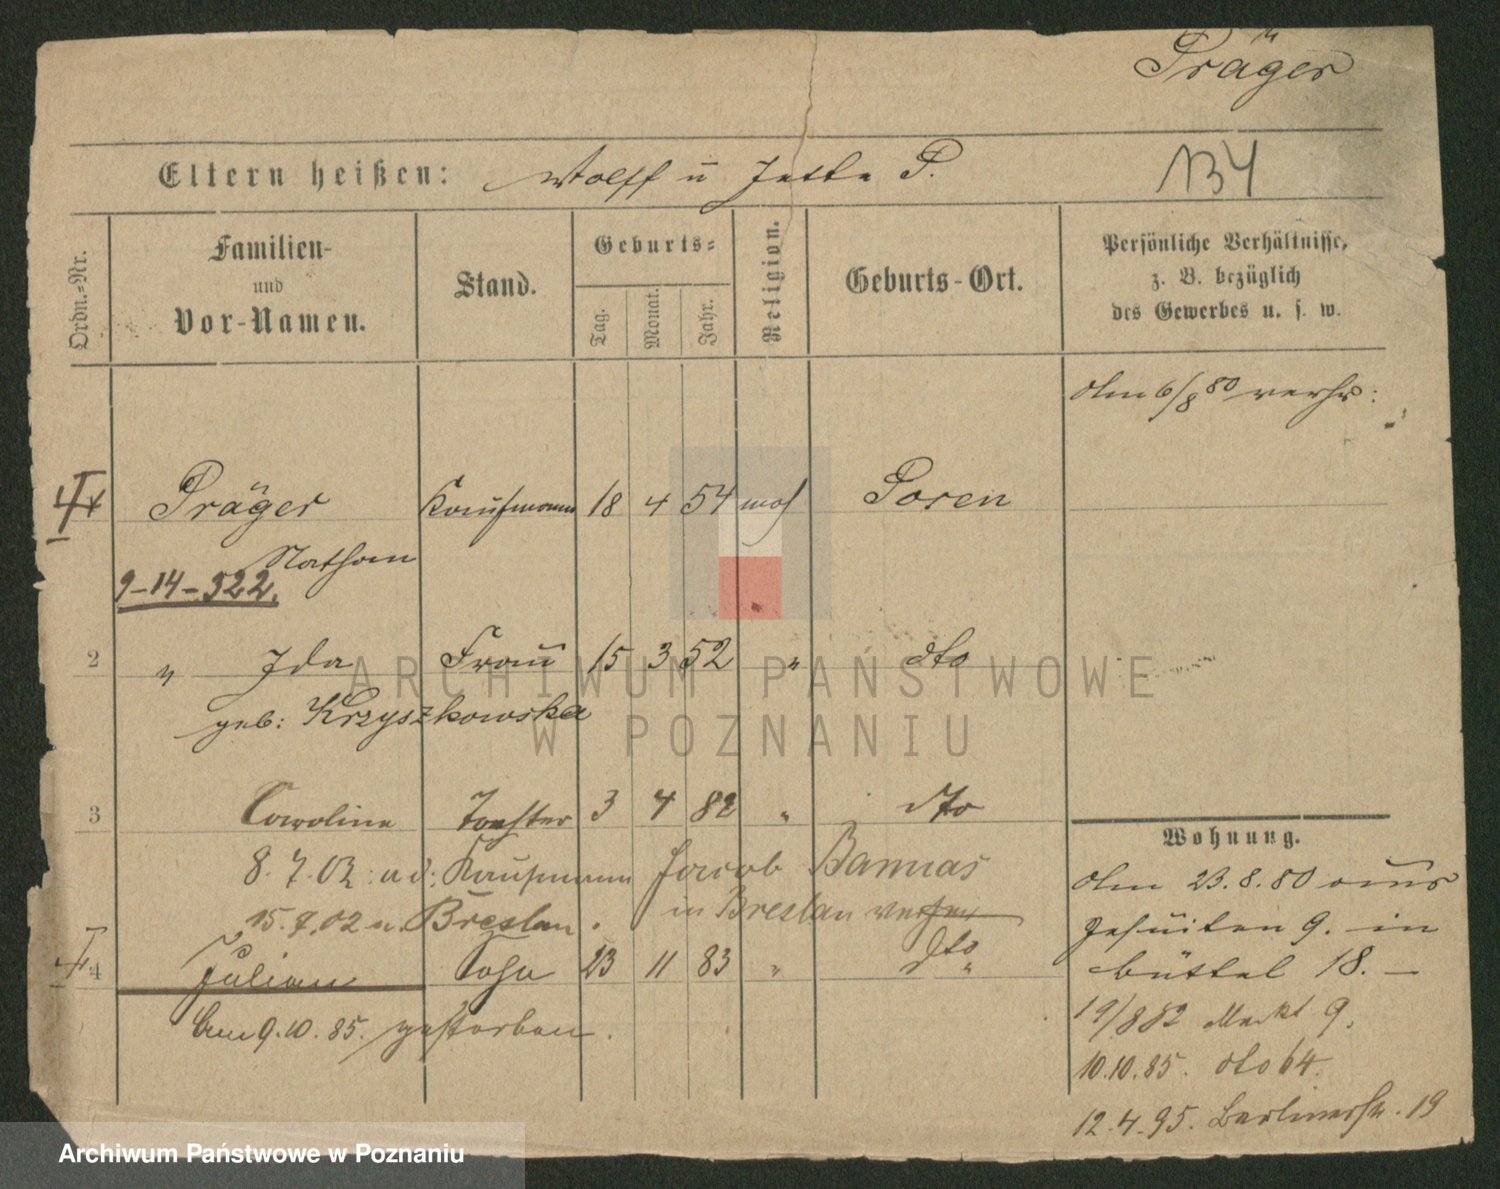 Präger
Eltern heißen: Wolff u Jette P.
134
Ordn.-Nr.
Familien-
und
Vor-Namen.
Stand.
Geburts-
Tag.
Monat.
Jahr.
Religion.
Geburts-Ort.
Persönliche Verhältnisse,
z. B. bezüglich
des Gewerbes u. s. w.
Am 6/8 80 verhr:
Präger Kaufmann 18 4 54 mos Posen
Nathan
9-14-522.
2 " Ida Frau 15 3 52 " dto
geb: Krzyszkowska
3 Caroline Tochter 3 4 82 " dto
8.7.02: a d: Kaufmann Jacob Bannas
15.9.02 n. Breslau. in Breslau
4 Julian Sohn 23 11 83 " dto "
Am 9.10.85. gestorben.
Wohnung.
Am 23.8.80 aus
Jesuiten 9. in
büttel 18. –
19/8 82 Markt 9.
10.10.85. dto 64.
12.4.95. Berlinerstr. 19
ARCHIWUM PAŃSTWOWE
W POZNANIU
Archiwum Państwowe w Poznaniu